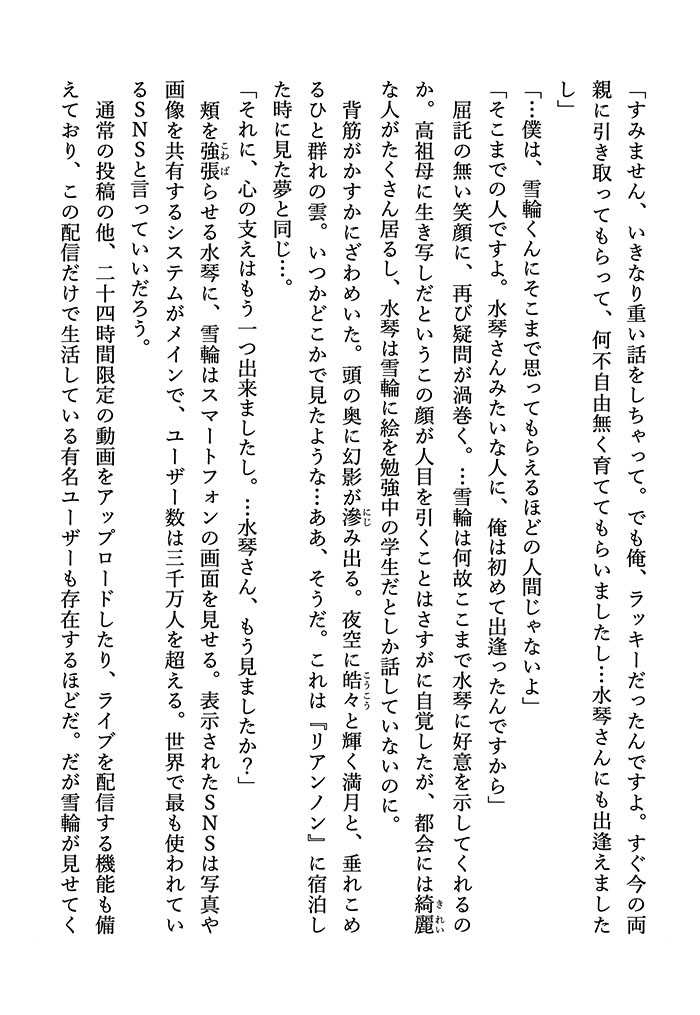 「すみません、いきなり重い話をしちゃって。でも俺、ラッキーだったんですよ。すぐ今の両
親に引き取ってもらって、何不自由無く育ててもらいましたし…水琴さんにも出逢えました
し」
「…僕は、雪輪くんにそこまで思ってもらえるほどの人間じゃないよ」
「そこまでの人ですよ。水琴さんみたいな人に、俺は初めて出逢ったんですから」
屈託の無い笑顔に、再び疑問が渦巻く。…雪輪は何故ここまで水琴に好意を示してくれるの
か。高祖母に生き写しだというこの顔が人目を引くことはさすがに自覚したが、都会には綺麗
な人がたくさん居るし、水琴は雪輪に絵を勉強中の学生だとしか話していないのに。
背筋がかすかにざわめいた。頭の奥に幻影が滲み出る。夜空に皓々と輝く満月と、垂れこめ
るひと群れの雲。いつかどこかで見たような…ああ、そうだ。これは『リアンノン』に宿泊し
た時に見た夢と同じ…。
「それに、心の支えはもう一つ出来ましたし。…水琴さん、もう見ましたか？」
頬を強張らせる水琴に、雪輪はスマートフォンの画面を見せる。表示されたSNSは写真や
画像を共有するシステムがメインで、ユーザー数は三千万人を超える。世界で最も使われてい
るSNSと言っていいだろう。
通常の投稿の他、二十四時間限定の動画をアップロードしたり、ライブを配信する機能も備
えており、この配信だけで生活している有名ユーザーも存在するほどだ。だが雪輪が見せてく